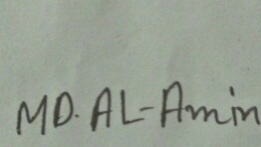 MD. AL-Amin